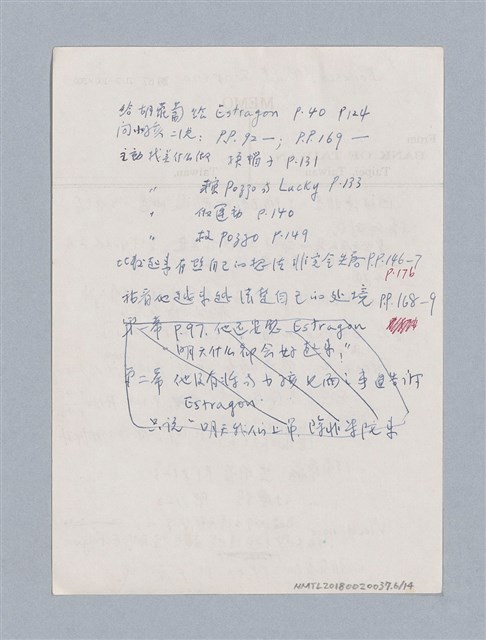 给胡蘿蔔给 Estragon p.40 p124
问小孩二次: P.P. 92—; P.P. 169—
主动找些什么做 换帽子 p.131
〃 Pozzo与Lucky p.133
〃 做運動 p.140
〃 救 Pozzo p.149
比較起来有些自己的想法 非完全 P.P. 146-7
p.176
越来越清楚自己的处境 pp. 168-9
第一幕 p.97. 他还安慰 Estragon
"明天什么都会好起来!"
第二幕 他没有将与小孩见面之事告诉
Estragon.
只说"明天我们上吊, 除非果陀来
MEMO
From
Taipei, Taiwan
NMTL20180020037.6/14